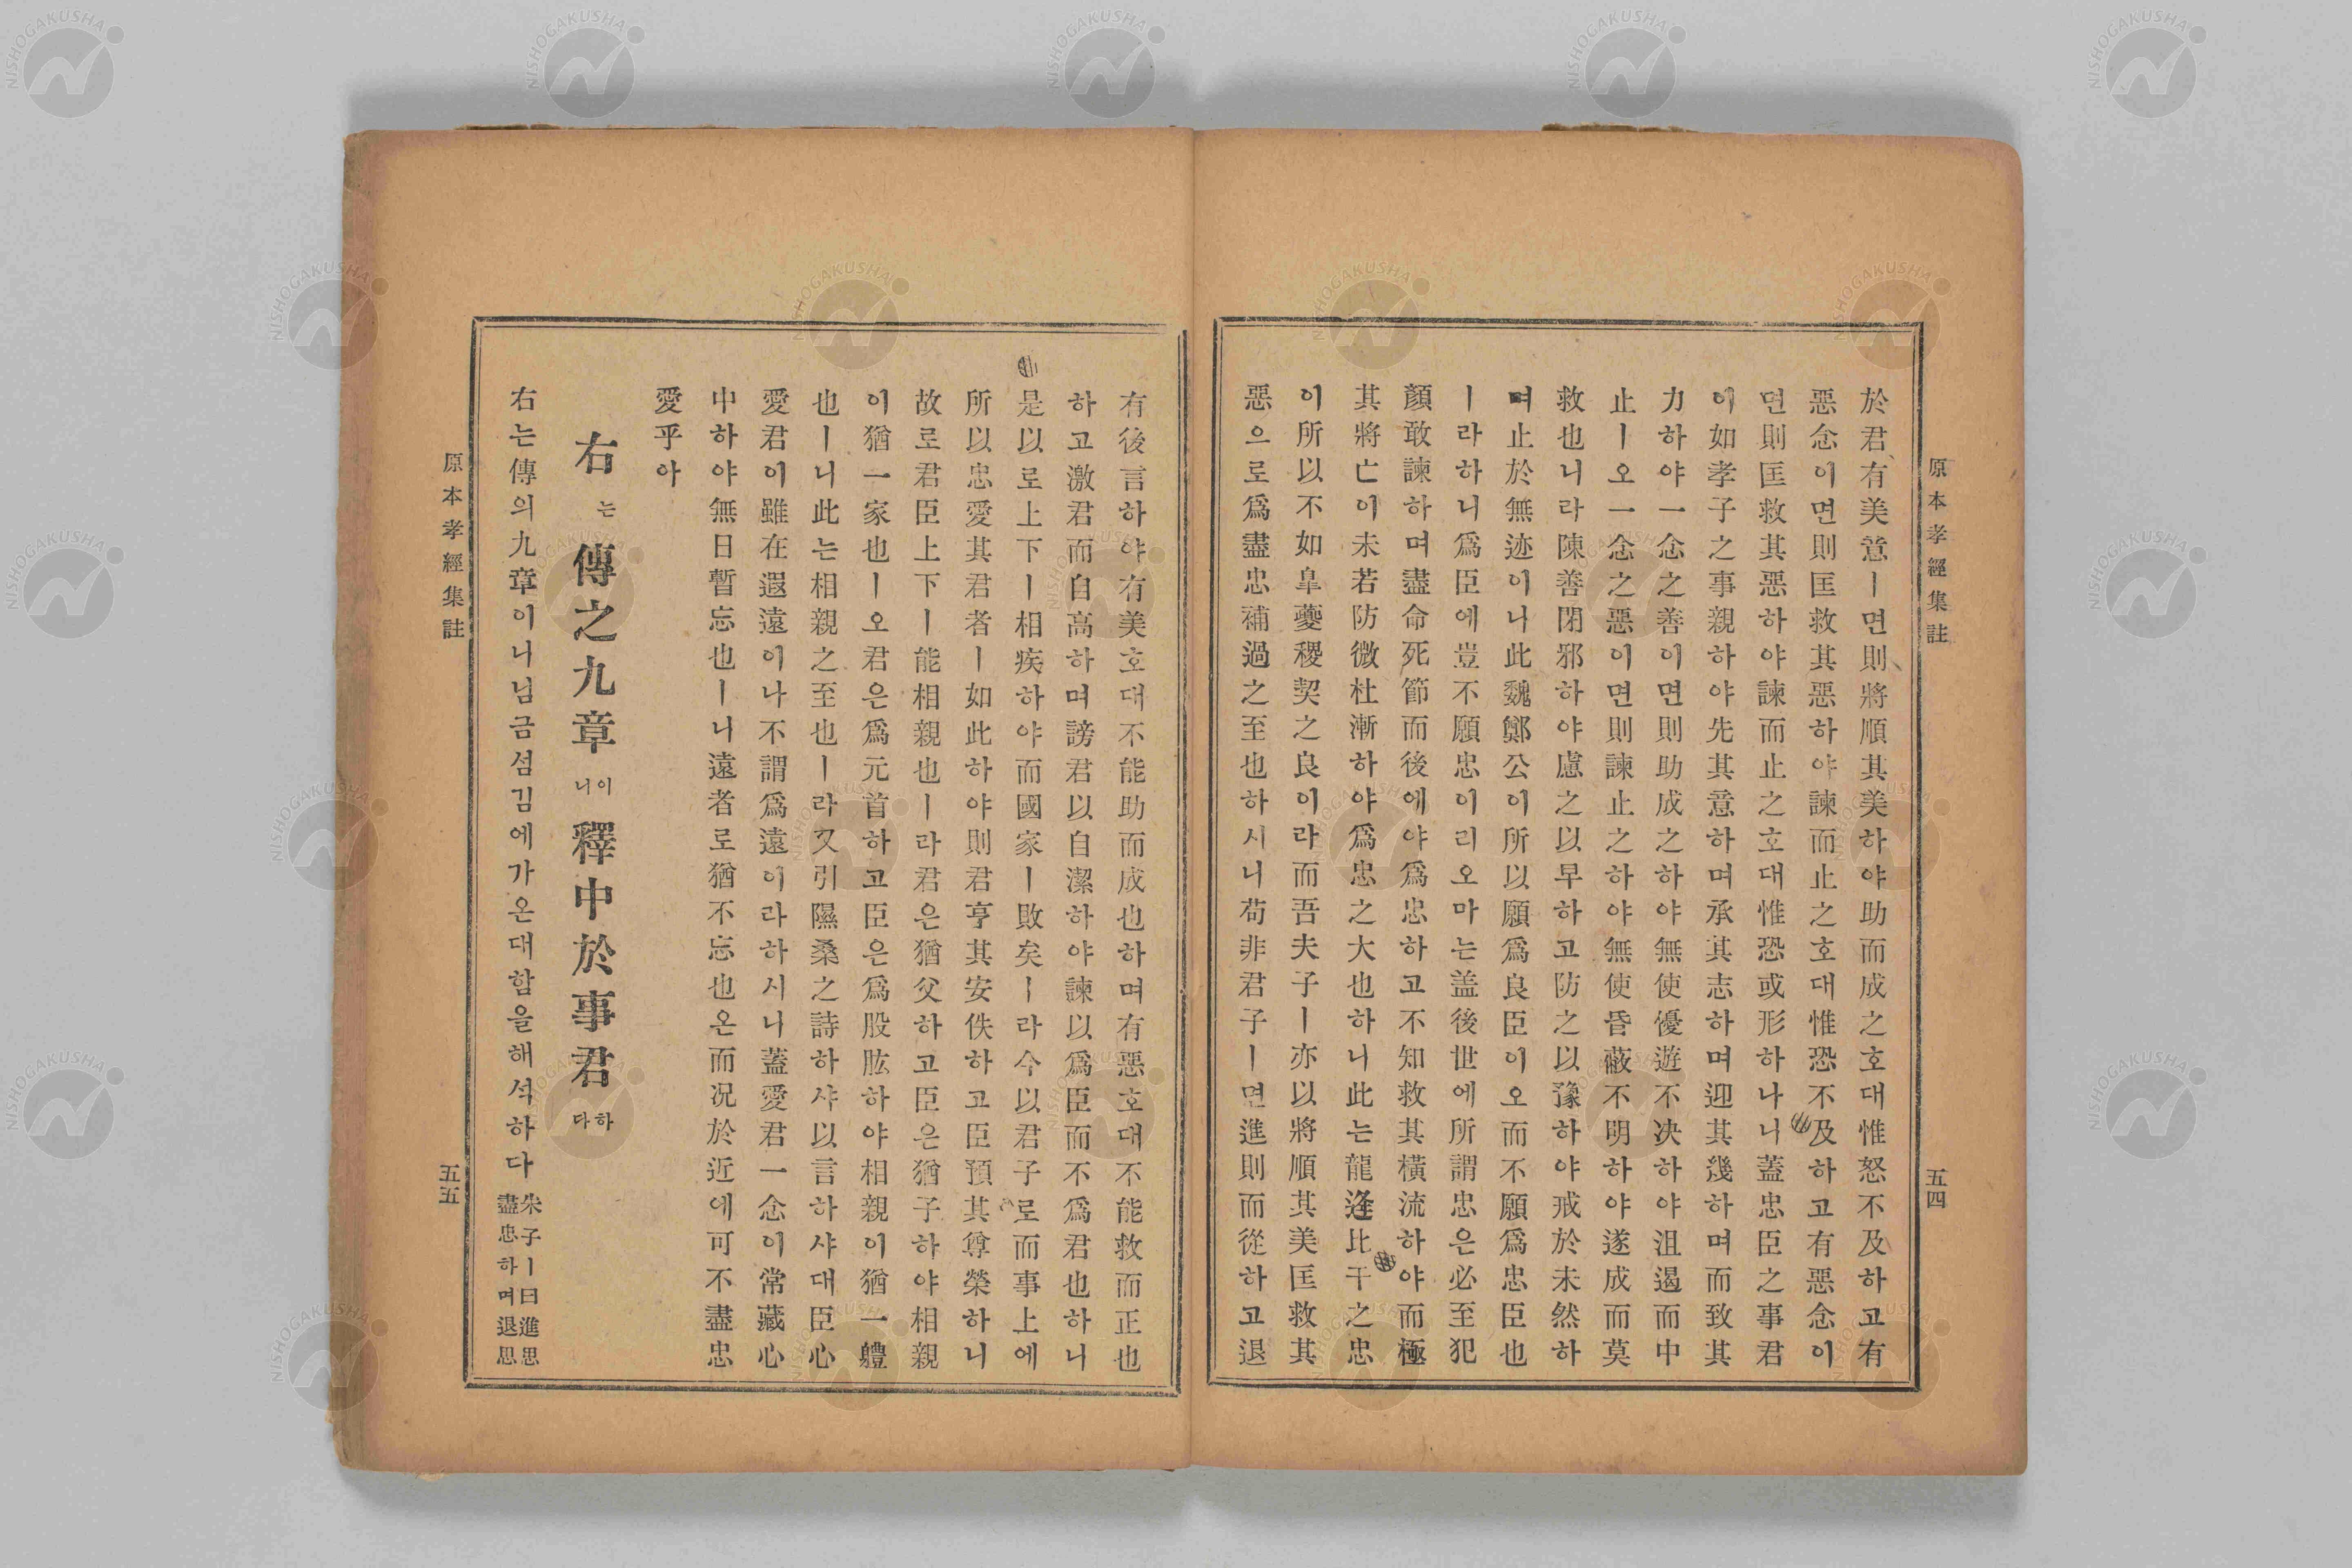 原本孝經集註 五四
於君有美意ㅣ면則將順其美하야助而成之호대惟怒不及하고有
惡念이면則匡救其惡하야諫而止之호대惟恐不及하고有惡念이
면則匡救其惡하야諫而止之호대惟恐或形하나니蓋忠臣之事君
이如孝子之事親하야先其意하며承其志하며迎其幾하며而致其
力하야一念之善이면則助成之하야無使優遊不决하야沮遏而中
止ㅣ오一念之惡이면則諫止之하야無使昏蔽不明하야遂成而莫
救也니라陳善閉邪하야慮之以早하고防之以豫하야戒於未然하
며止於無迹이니此魏鄭公이所以願爲良臣이오而不願爲忠臣也
ㅣ라하니爲臣에豈不願忠이리오마는盖後世에所謂忠은必至犯
顏敢諫하며盡命死節而後에야爲忠하고不知救其橫流하야而極
其將亡이未若防微杜漸하야爲忠之大也하니此는龍逄比干之忠
이所以不如皐夔稷契之良이라而吾夫子ㅣ亦以將順其美匡救其
惡으로爲盡忠補過之至也하시니苟非君子ㅣ면進則而從하고退
有後言하야有美호대不能助而成也하며有惡호대不能救而正也
하고激君而自高하며謗君以自潔하야諫以爲臣而不爲君也하니
是以로上下ㅣ相疾하야而國家ㅣ敗矣ㅣ라今以君子로而事上에
所以忠愛其君者ㅣ如此하야則君亨其安佚하고臣預其尊榮하니
故로君臣上下ㅣ能相親也ㅣ라君은猶父하고臣은猶子하야相親
이猶一家也ㅣ오君은爲元首하고臣은爲股肱하야相親이猶一軆
也ㅣ니此는相親之至也ㅣ라又引隰桑之詩하샤以言하샤대臣心
愛君이雖在遐遠이나不謂爲遠이라하시니蓋愛君一念이常藏心
中하야無日暫忘也ㅣ니遠者로猶不忘也온而况於近에可不盡忠
愛乎아
右는 傳之九章이니 釋中於事君하다
右는傳의九章이니님금섬김에가온대함을해석하다 朱子ㅣ曰進思
盡忠하며退思
原本孝經集註 五五